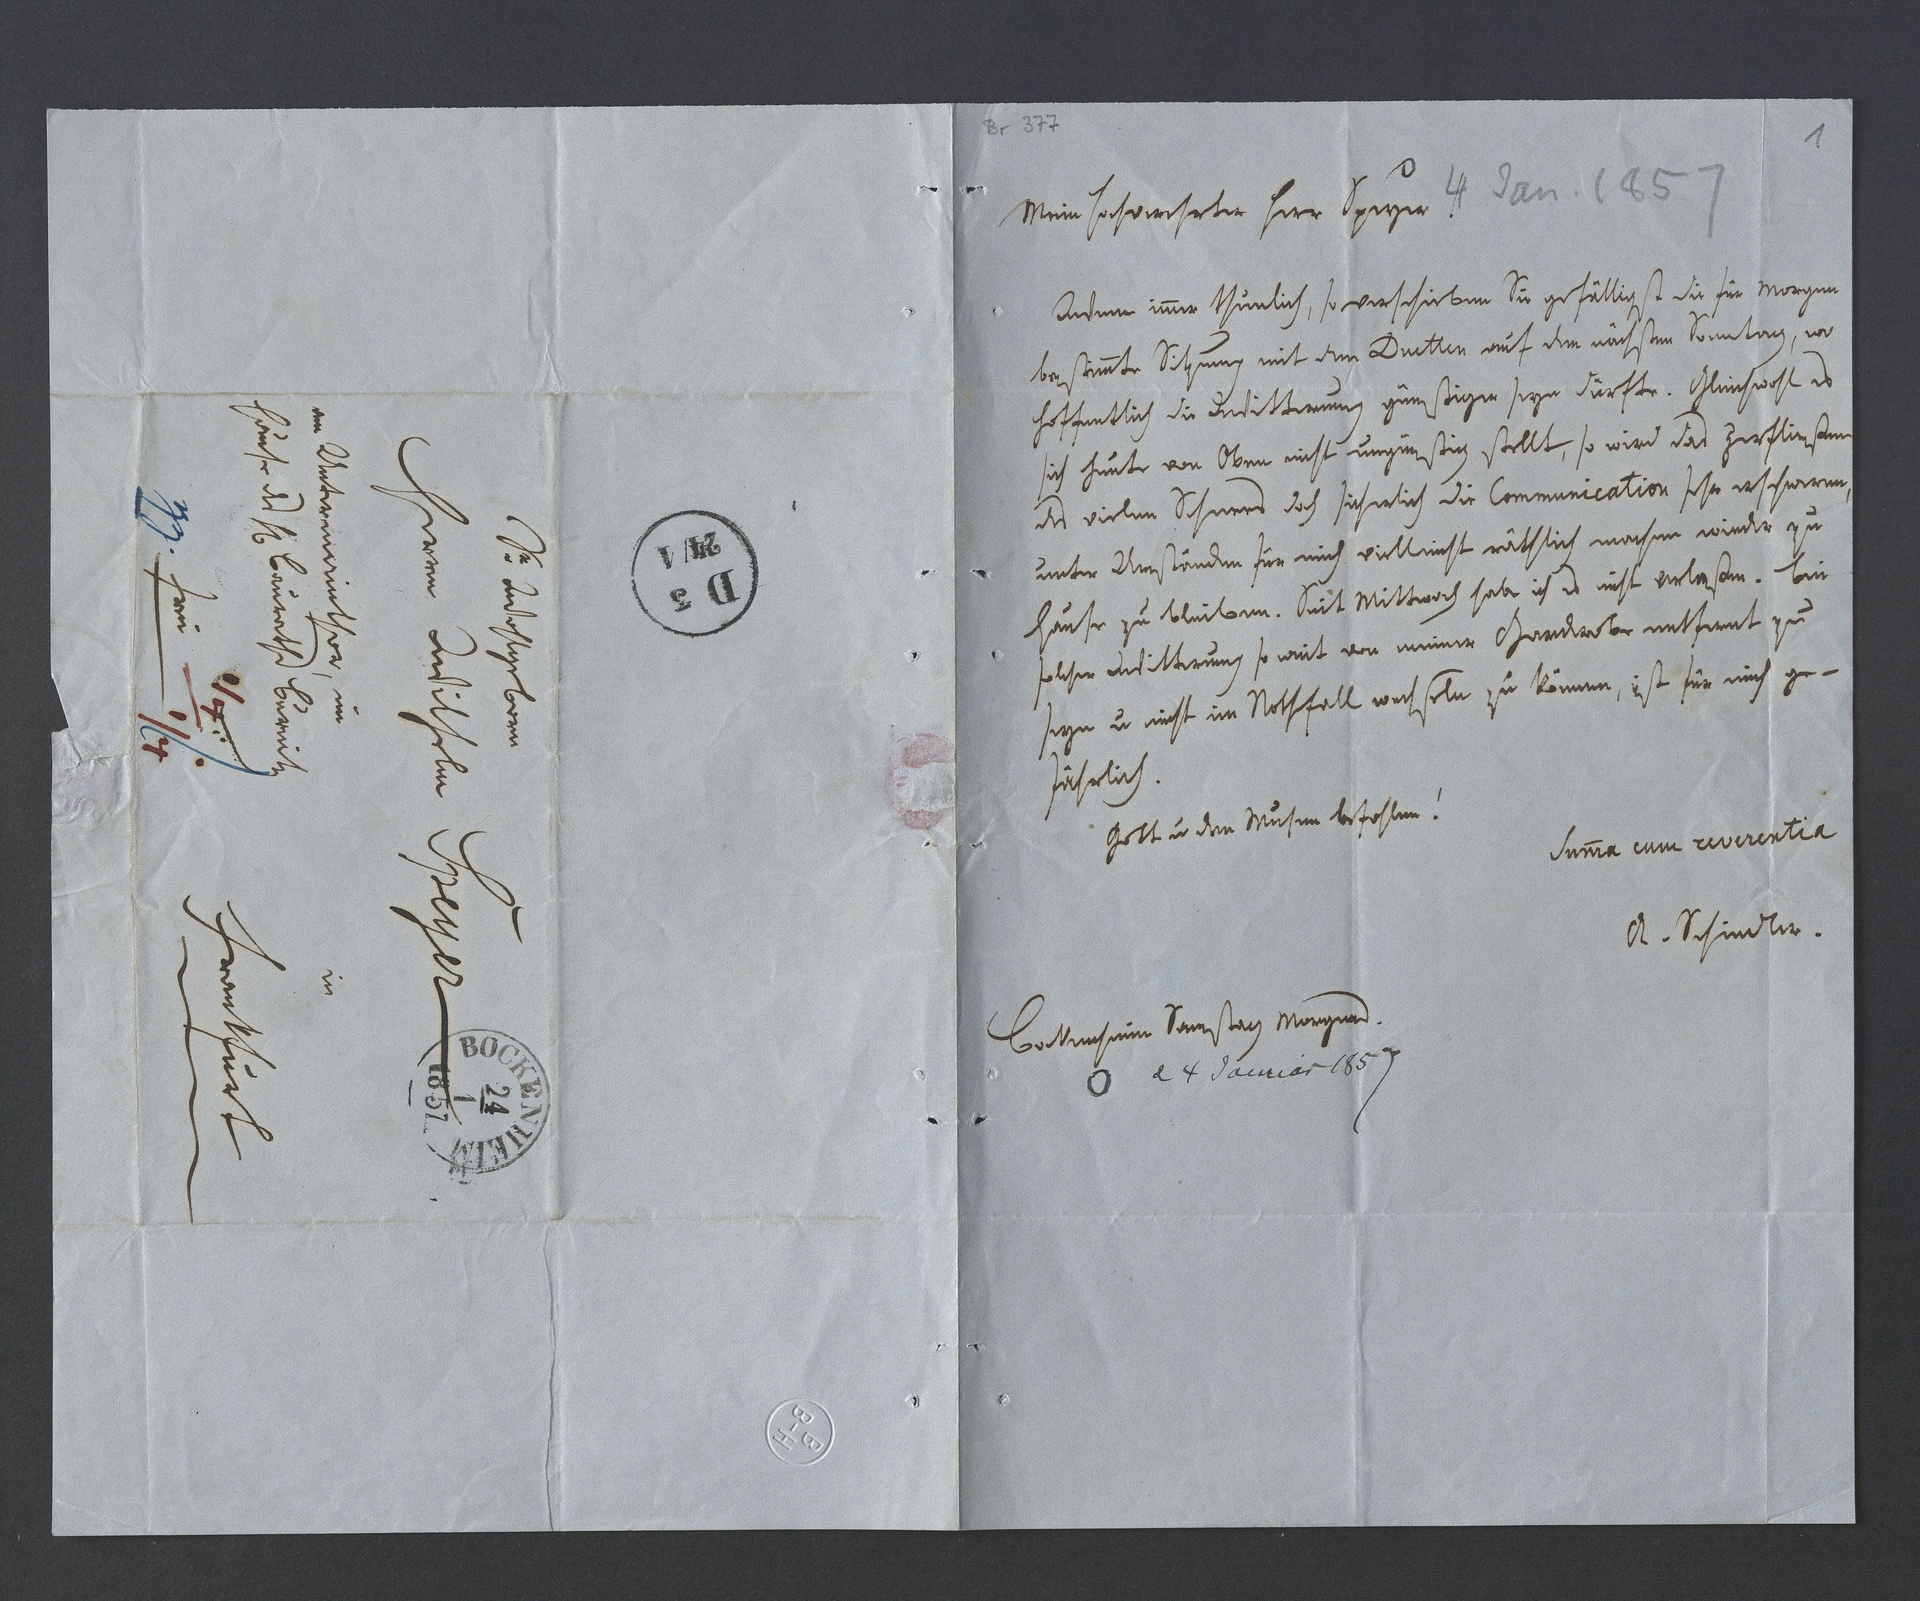 Br 377
1
4 Jan. 1857
Mein hochverehrter Herr Speyer!
Wenn im̄er thunlich, so verschieben Sie gefälligst die für Morgen
bestim̄te Sitzung mit den Duetten auf den nächsten Sonntag, wo
hoffentlich die Witterung günstiger seyn dürfte. Gleichwohl es
sich heute von Oben nicht ungünstig stellt, so wird das Zerfließen
des vielen Schnees doch sicherlich die Communication sehr erschweren,
unter Umständen für mich vielleicht räthlich machen wieder zu
Hause zu bleiben. Seit Mittwoch habe ich es nicht verlassen. Bei
solcher Witterung so weit von meiner Garderobe entfernt zu
seyn u nicht im Nothfall wechseln zu können, ist für mich ge-
fährlich.
Gott u den Musen befohlen!
Sum̄a cum reverentia
A. Schindler.
Bockenheim Samstag Morgens.
d 4 Januar 1857
Sr Wohlgeborn
Herrn Wilhelm Speyer
am Untermainthor, im
Hause des H.
in
Frankfurt
frei
BOCKENHEIM
24
1
1857
D 3
24/1
B-H
B